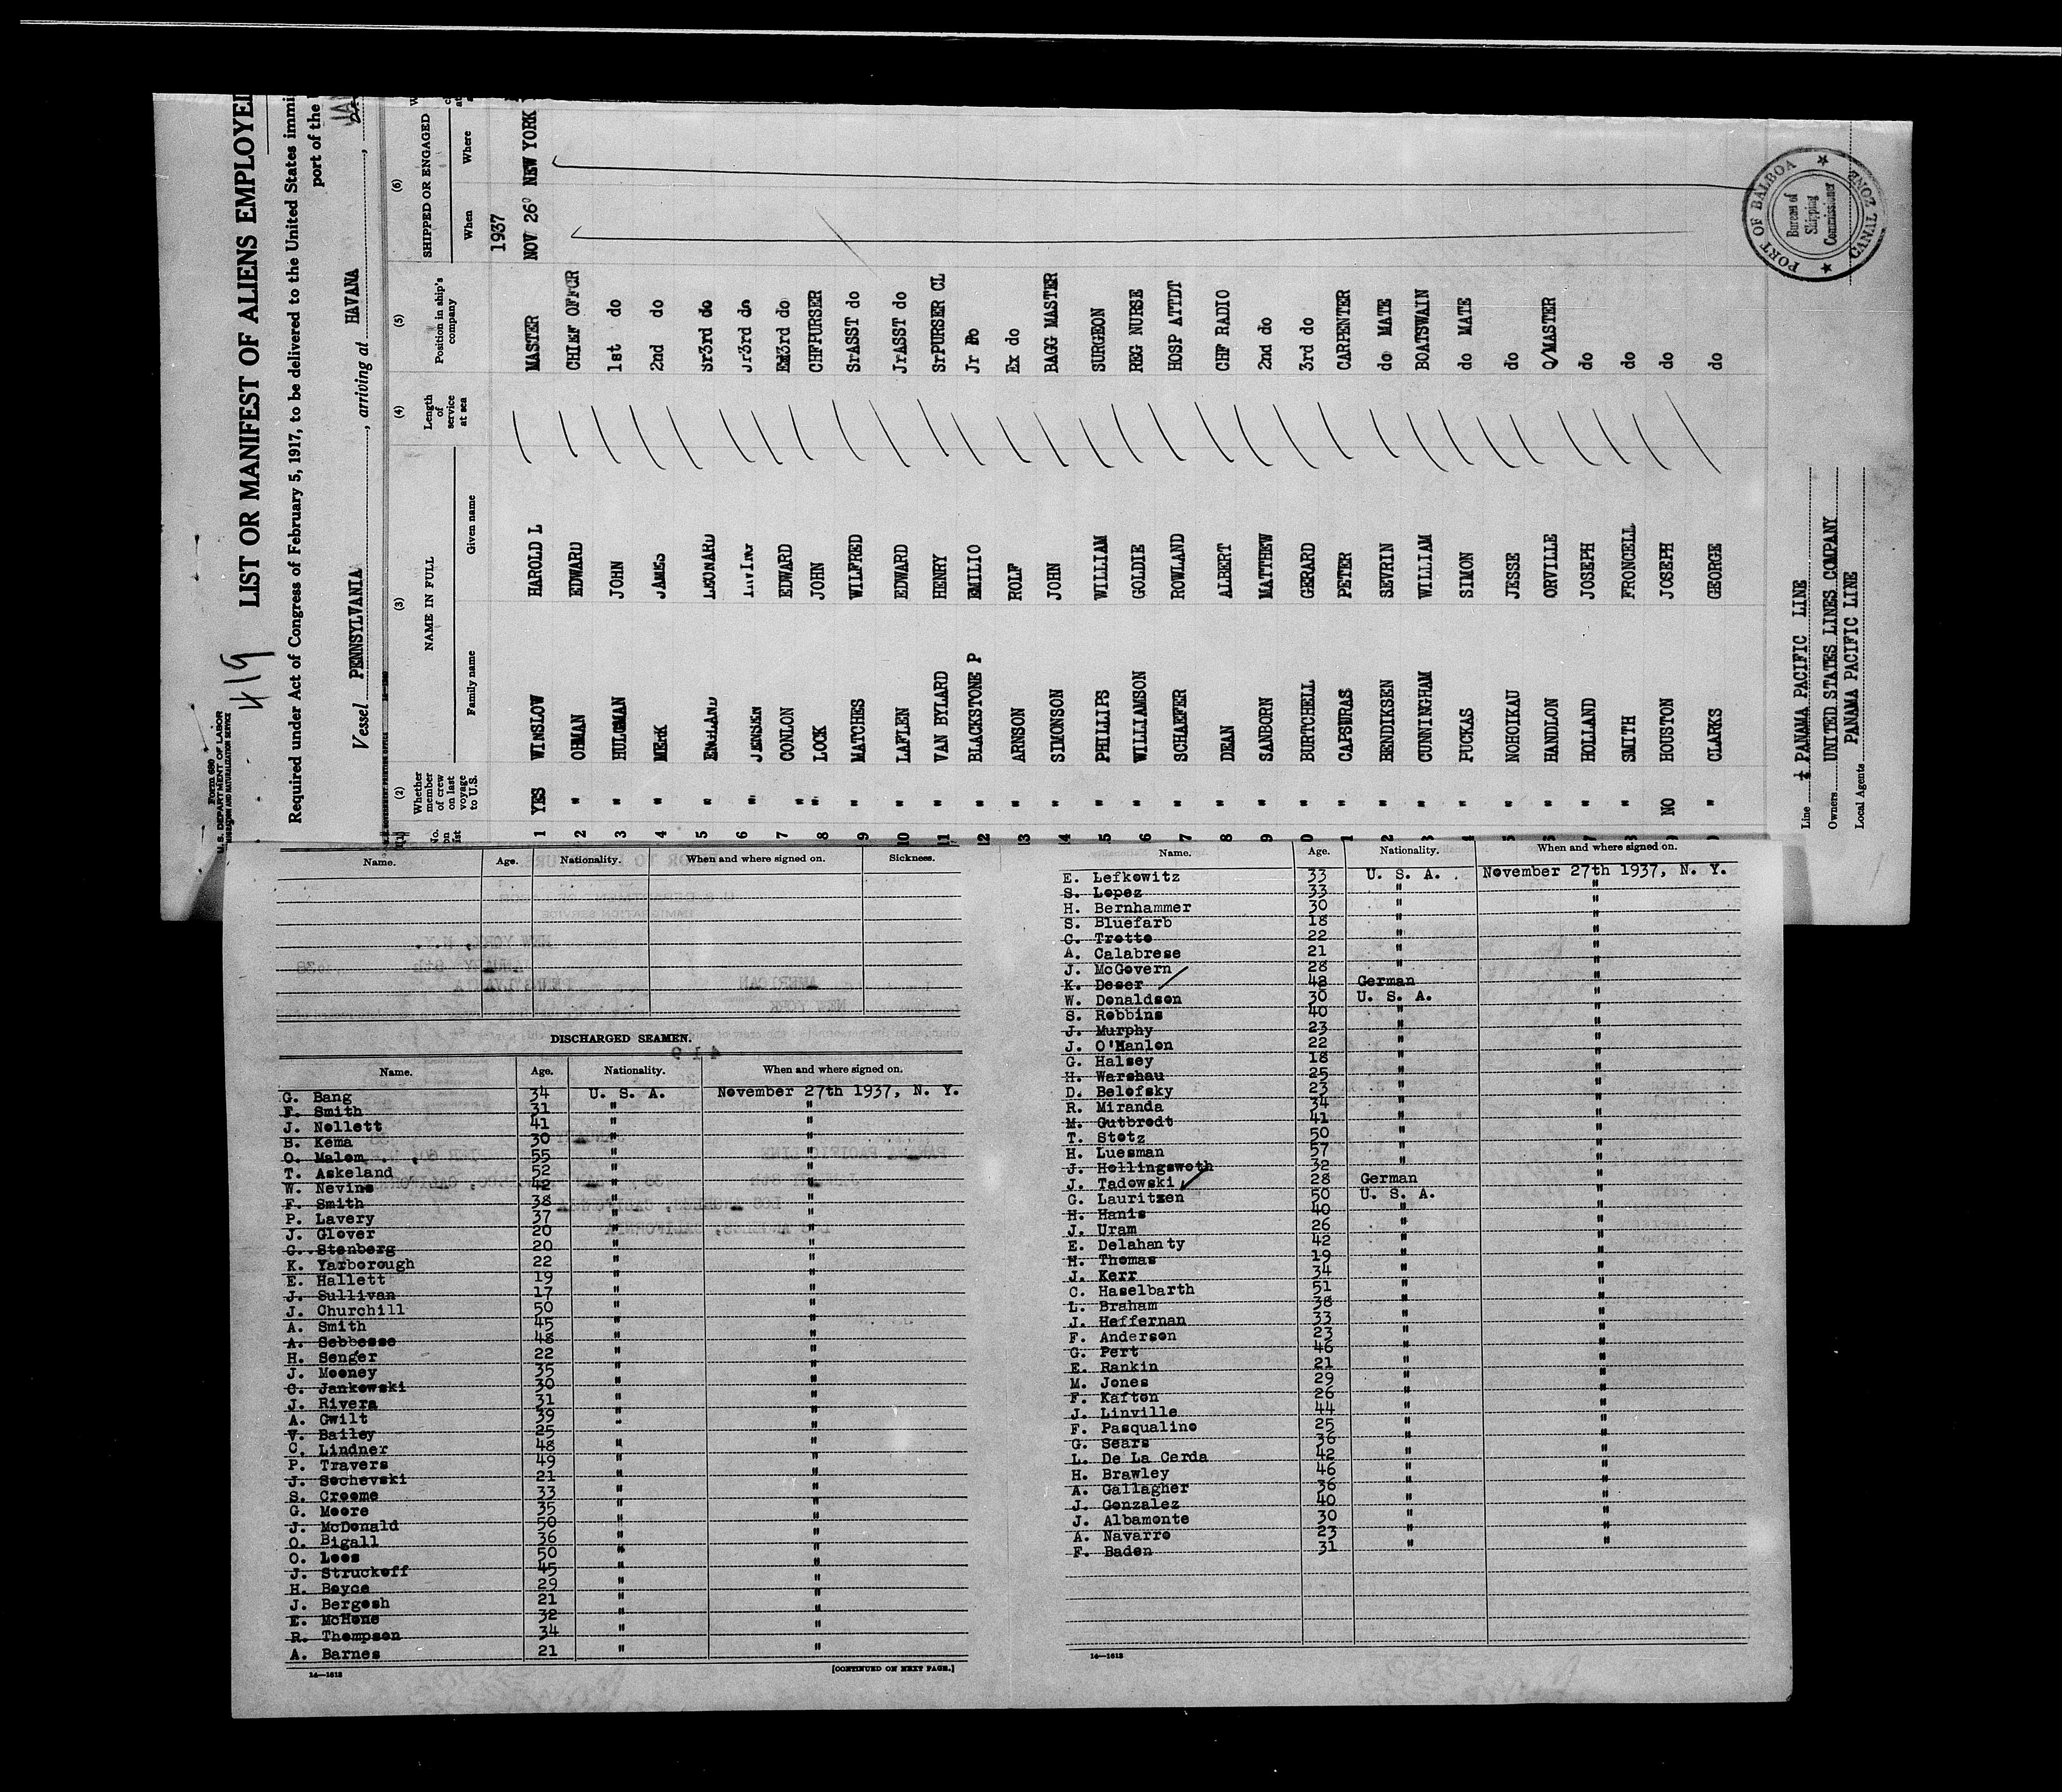 Form 680
U. S. DEPARTMENT OF LABOR
IMMIGRATION AND NATURALIZATION SERVICE
419
LIST OR MANIFEST OF ALIENS EMPLOYED
Required under Act of Congress of February 5, 1917, to be delivered to the United States immi
port of the
Vessel PENNSYLVANIA, arriving at HAVANA,
(2) (3) (4) (5) (6)
No. on list Whether member of crew on last voyage to U.S. NAME IN FULL Family name Given name Length of service at sea Position in ship's company SHIPPED OR ENGAGED When Where
1937
1 YES WINSLOW HAROLD L MASTER NOV 26 NEW YORK
2 " OHMAN EDWARD CHIEF OFFCR
3 " HULGMAN JOHN 1st do
4 " MERK JAMES 2nd do
5 " ENGLAND LEONARD Sr3rd do
6 " JENSEN Jr3rd do
7 " CONLON EDWARD EM3rd do
8 " LOCK JOHN CHFPURSER
9 " MATCHES WILFRED SrASST do
10 " LAFLEN EDWARD JrASST do
11 " VAN BYLARD HENRY SrPURSER CL
12 " BLACKSTONE P EMILIO Jr Do
13 " ARNSON ROLF Ex do
14 " SIMONSON JOHN BAGG MASTER
5 " PHILLIPS WILLIAM SURGEON
6 " WILLIAMSON GOLDIE REG NURSE
7 " SCHAEFER ROWLAND HOSP ATTDT
8 " DEAN ALBERT CHF RADIO
9 " SANBORN MATTHEW 2nd do
0 " BURTCHELL GERARD 3rd do
1 " CAPSURAS PETER CARPENTER
2 " BENDIKSEN SEVRIN do MATE
3 " CUNNINGHAM WILLIAM BOATSWAIN
4 " PUCKAS SIMON do MATE
5 " NOHOIKAU JESSE do
6 " HANDLON ORVILLE Q/MASTER
7 " HOLLAND JOSEPH do
8 " SMITH FRONCELL do
9 NO HOUSTON JOSEPH do
" CLARKS GEORGE do
PORT OF BALBOA
CANAL ZONE
Bureau of
Shipping
Commissioner
Line PANAMA PACIFIC LINE
Owners UNITED STATES LINES COMPANY
Local Agents PANAMA PACIFIC LINE
Name. Age. Nationality. When and where signed on. Sickness.
DISCHARGED SEAMEN.
Name. Age. Nationality. When and where signed on.
G. Bang 34 U. S. A. November 27th 1937, N. Y.
F. Smith 31 " "
J. Nellett 41 " "
B. Kema 30 " "
O. Malem 55 " "
T. Askeland 52 " "
W. Nevins 42 " "
F. Smith 38 " "
P. Lavery 37 " "
J. Glover 20 " "
C. Stenberg 20 " "
K. Yarborough 22 " "
E. Hallett 19 " "
J. Sullivan 17 " "
J. Churchill 50 " "
A. Smith 45 " "
A. Sebbesse 48 " "
H. Senger 22 " "
J. Mooney 35 " "
C. Jankowski 30 " "
J. Rivera 31 " "
A. Gwilt 39 " "
V. Bailey 25 " "
C. Lindner 48 " "
P. Travers 49 " "
J. Sochevski 21 " "
S. Croome 33 " "
G. Moore 35 " "
J. McDonald 50 " "
O. Bigall 36 " "
O. Loos 50 " "
J. Struckoff 45 " "
H. Boyce 29 " "
J. Bergosh 21 " "
E. McHone 32 " "
R. Thompson 34 " "
A. Barnes 21 " "
14—1613
[CONTINUED ON NEXT PAGE.]
Name. Age. Nationality. When and where signed on.
E. Lefkowitz 33 U. S. A. November 27th 1937, N. Y.
S. Lopez 33 " "
H. Bernhammer 30 " "
S. Bluefarb 18 " "
C. Trotto 22 " "
A. Calabrese 21 " "
J. McGovern 28 " "
K. Deser 48 German "
W. Donaldson 30 U. S. A. "
S. Robbins 40 " "
J. Murphy 23 " "
J. O'Hanlon 22 " "
G. Halsey 18 " "
H. Warshau 25 " "
D. Belofsky 23 " "
R. Miranda 34 " "
M. Gutbrodt 41 " "
T. Stotz 50 " "
H. Luesman 57 " "
J. Hollingswoth 32 " "
J. Tadowski 28 German "
G. Lauritzen 50 U. S. A. "
H. Hanis 40 " "
J. Uram 26 " "
E. Delahanty 42 " "
H. Thomas 19 " "
J. Kerr 34 " "
C. Haselbarth 51 " "
L. Braham 38 " "
J. Heffernan 33 " "
F. Anderson 23 " "
G. Pert 46 " "
E. Rankin 21 " "
M. Jones 29 " "
F. Kafton 26 " "
J. Linville 44 " "
F. Pasqualino 25 " "
G. Sears 36 " "
L. De La Cerda 42 " "
H. Brawley 46 " "
A. Gallagher 36 " "
J. Gonzalez 40 " "
J. Albamonte 30 " "
A. Navarro 23 " "
F. Baden 31 " "
14—1613